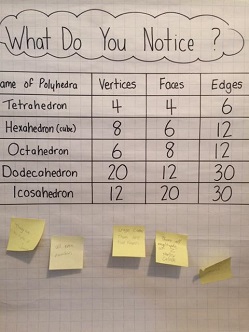 What Do You Notice ?
ame of Polyhedra Vertices Faces Edges
Tetrahedron 4 4 6
Hexahedron (cube) 8 6 12
Octahedron 6 8 12
Dodecahedron 20 12 30
Icosahedron 12 20 30